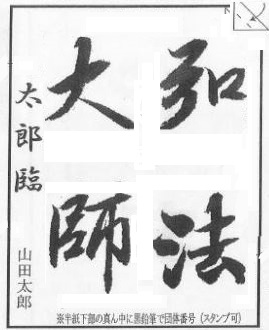 弘法
大師
太郎臨
山田太郎
※半紙下部の真ん中に黒鉛筆で団体番号（スタンプ可）